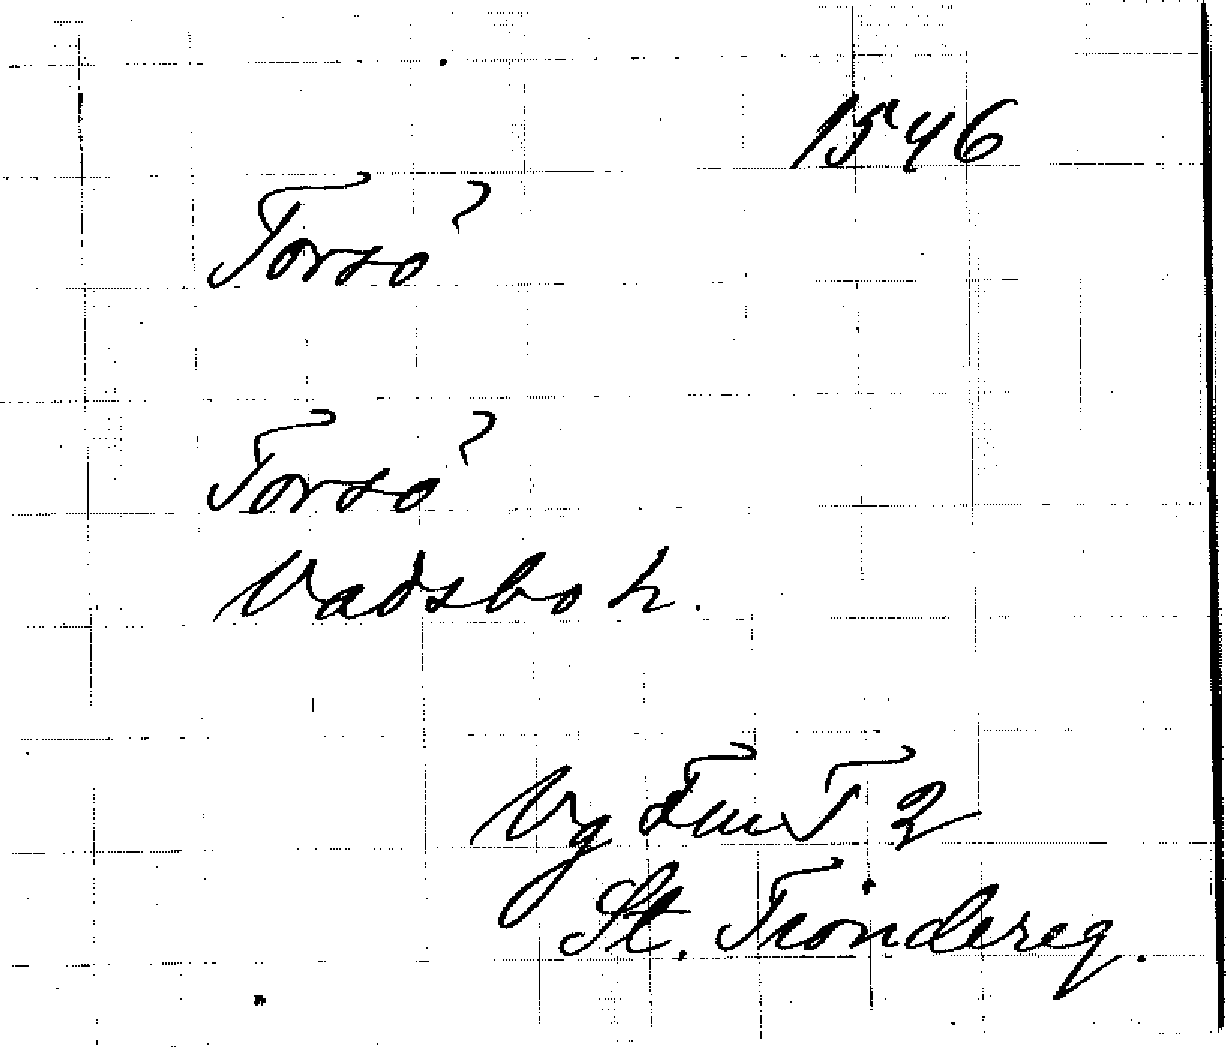 1546
Torsö
Torsö
Vadsbo h.
Vg T 2
St. Tiondereg.